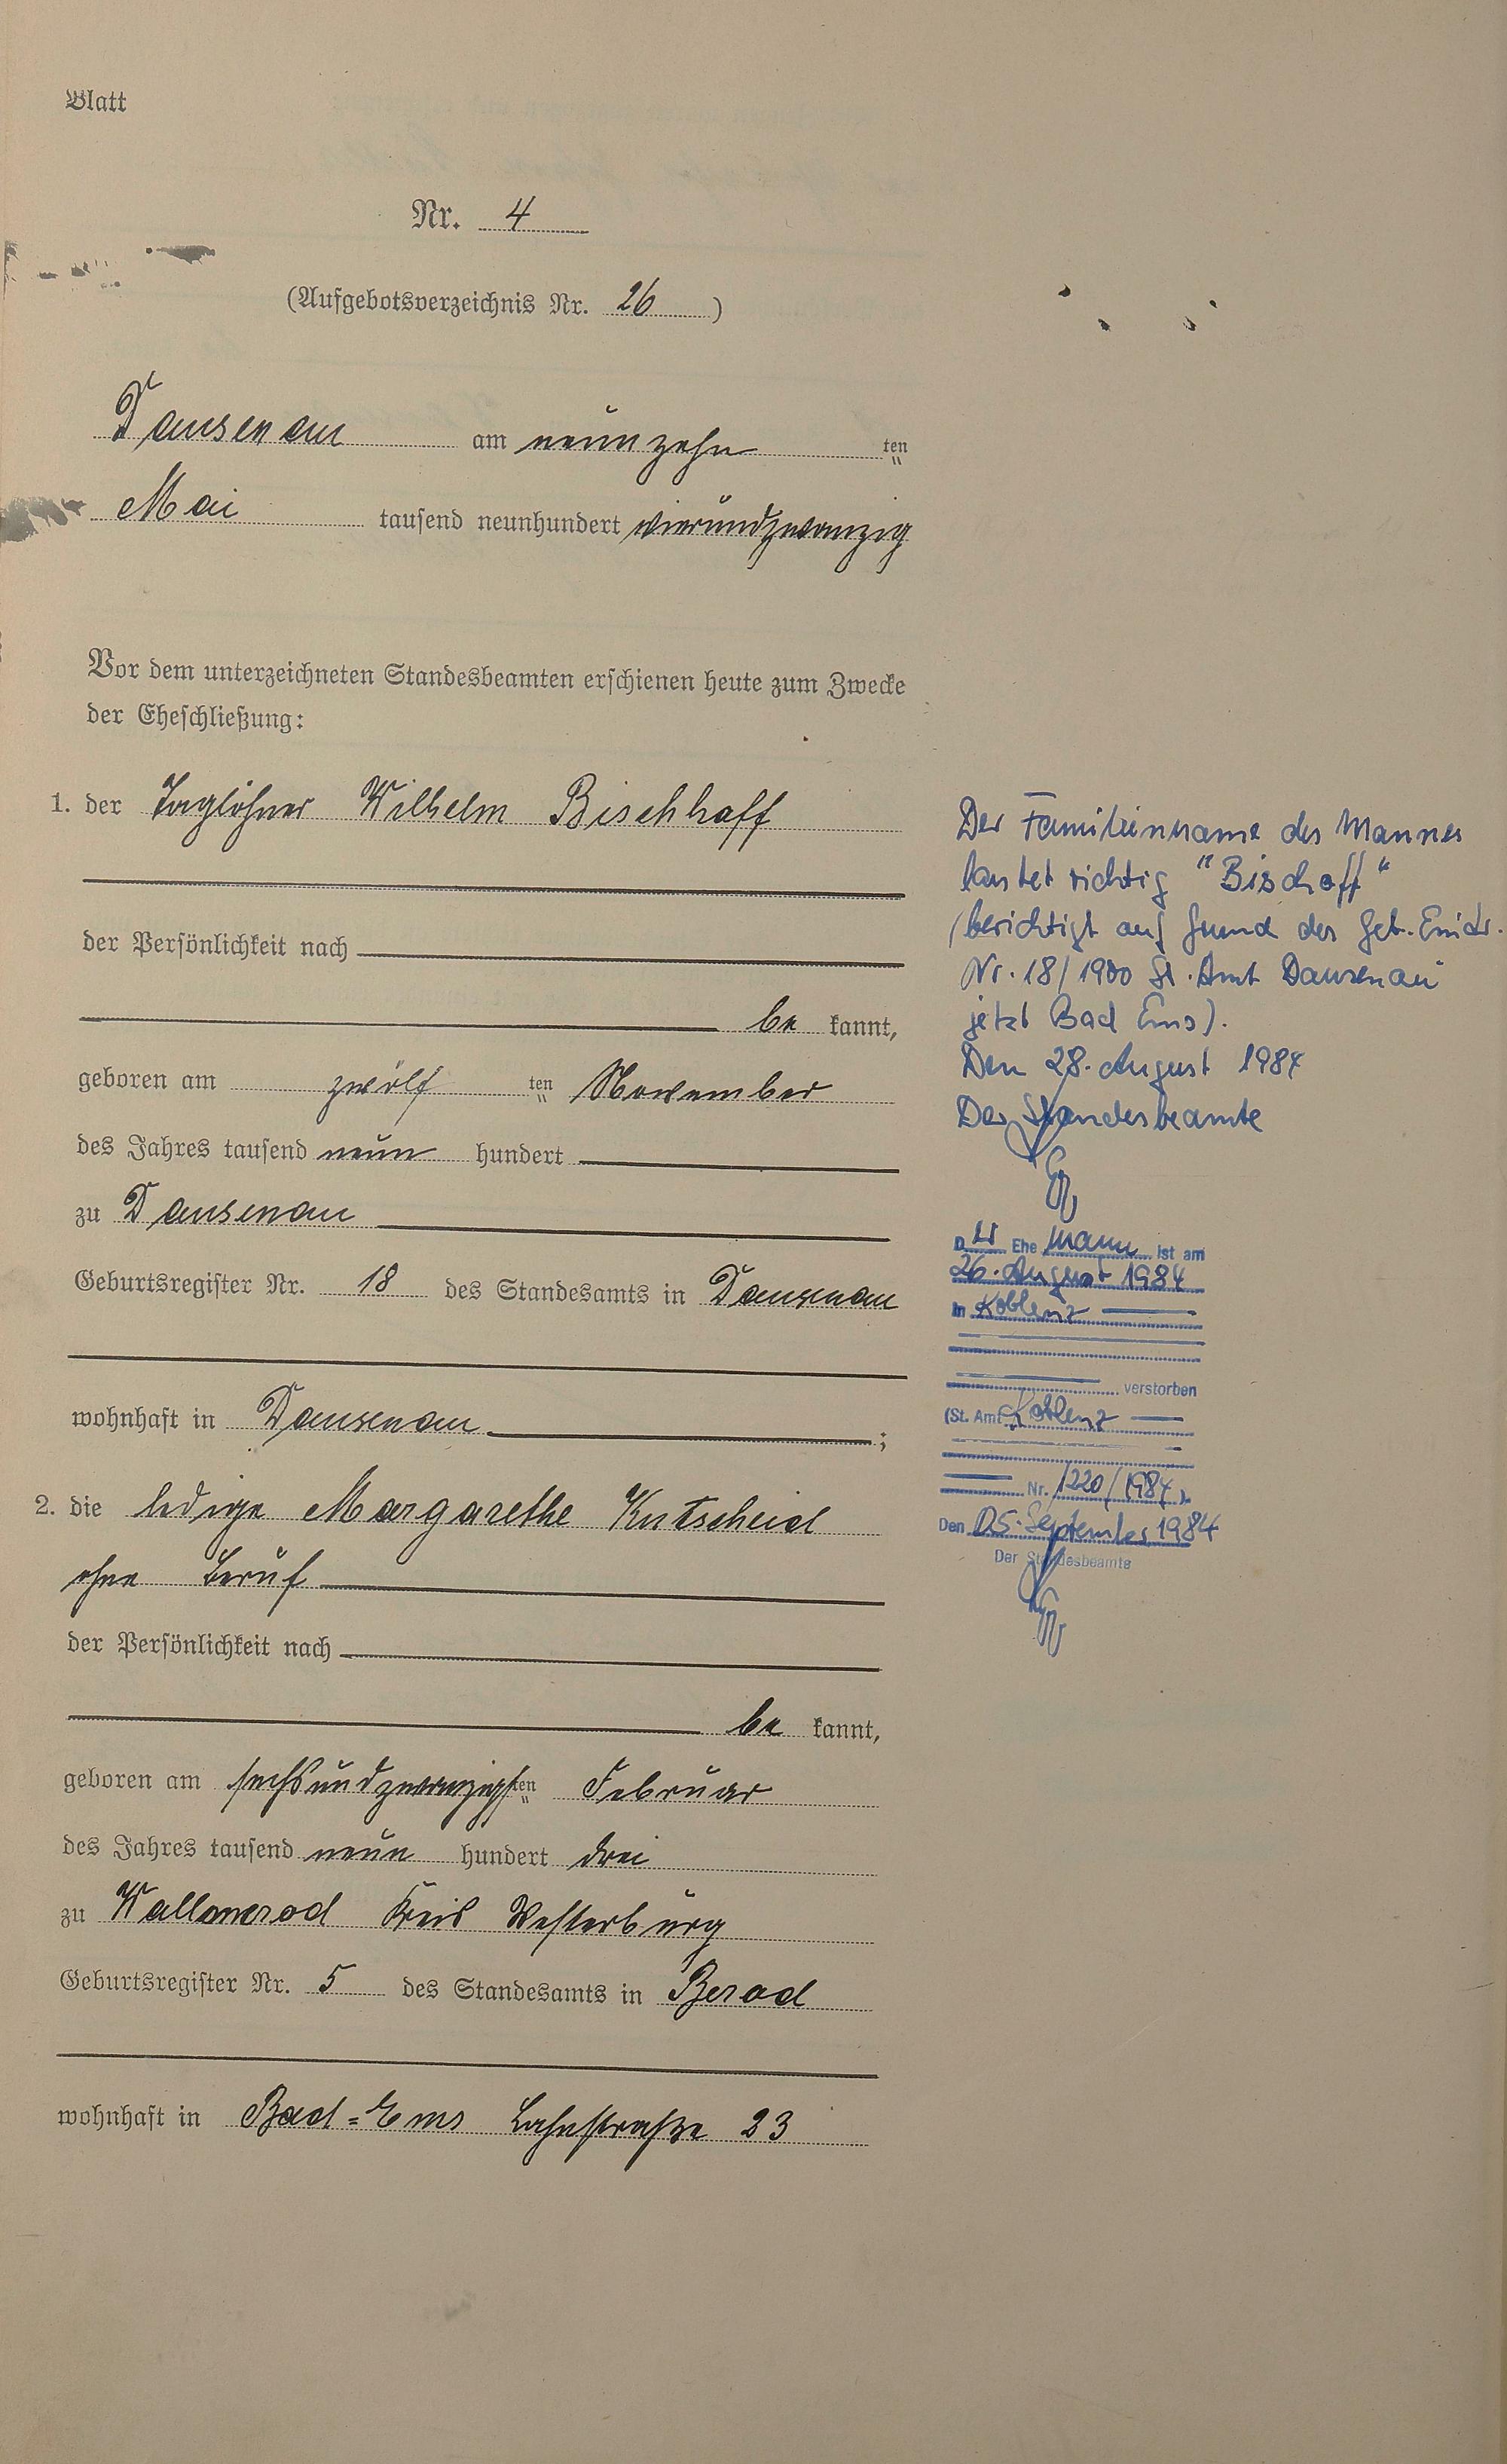 Blatt
Nr. 4
(Aufgebotsverzeichnis Nr. 26)
Dausenau am neunzehn ten
Mai tausend neunhundert vierundzwanzig
Vor dem unterzeichneten Standesbeamten erschienen heute zum Zwecke
der Eheschließung:
1. der Taglöhner Wilhelm Bischhoff
der Persönlichkeit nach
be kannt,
geboren am zwölf ten November
des Jahres tausend neun hundert
zu Dausenau
Geburtsregister Nr. 18 des Standesamts in Dausenau
wohnhaft in Dausenau ;
2. die ledige Margarethe Kutscheid
ohne Beruf
der Persönlichkeit nach
be kannt,
geboren am sechsundzwanzigsten Februar
des Jahres tausend neun hundert drei
zu Wallmerod Kreis Westerburg
Geburtsregister Nr. 5 des Standesamts in Berod
wohnhaft in Bad=Ems Lahnstraße 23
Der Familienname des Mannes
lautet richtig "Bischoff"
(berichtigt auf Grund des Geb. Eintr.
Nr. 18/1900 St. Amt Dausenau
jetzt Bad Ems).
Den 28. August 1984
Der Standesbeamte
Der Ehemann ist am
26. August 1984
in Koblenz
verstorben
(St. Amt Koblenz
Nr. 1220/1984)
Den 05. September 1984
Der Standesbeamte